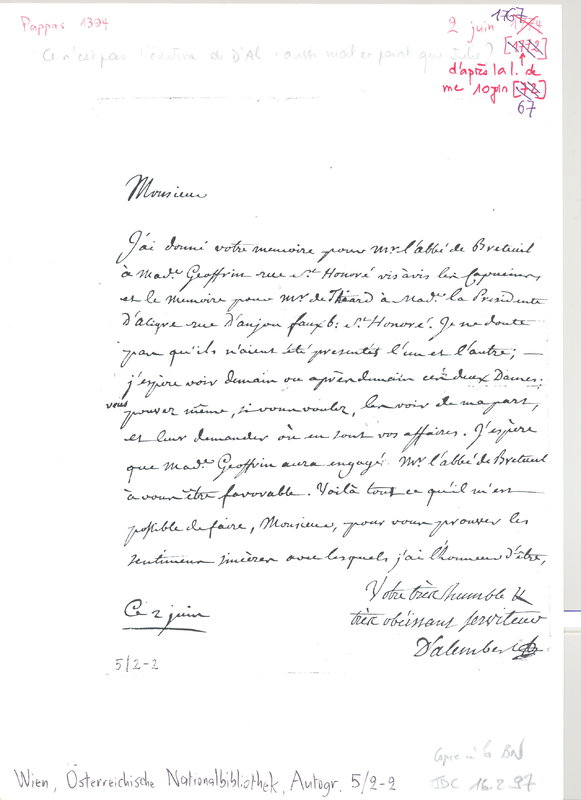 Pappas 1394
2 juin 1767 1774
[1772]
Ce n'est pas l'écriture de D'Al aussi mal er point que Julie ?
d'après la l. de
me 10 juin [72]
67
Monsieur
J'ai donné votre memoire pour Mr. l'abbé de Breteuil
à Made. Geoffrin rue St. Honoré vis à vis les Capucines
et le memoire pour Mr de Thiard à Made. la Presidente
D'aligre rue d'anjou fauxb: St. Honoré. Je ne doute
pas qu'ils n'aient été presentés l'un et l'autre; —
j'espère voir demain ou après demain ces deux Dames;
vous pouvez même, si vous voulez, les voir de ma part,
et leur demander où en sont vos affaires. J'espère
que Made. Geoffrin aura engagé Mr. l'abbé de Breteuil
à vous être favorable. Voilà tout ce qu'il m'est
possible de faire, Monsieur, pour vous prouver les
sentimens sincères avec lesquels j'ai l'honneur d'être,
Votre très humble &
très obéissant serviteur
Ce 2 juin
D'alembert
5/2-2
Copie à la BN
JDC 16.2.97
Wien, Österreichische Nationalbibliothek, Autogr. 5/2-2